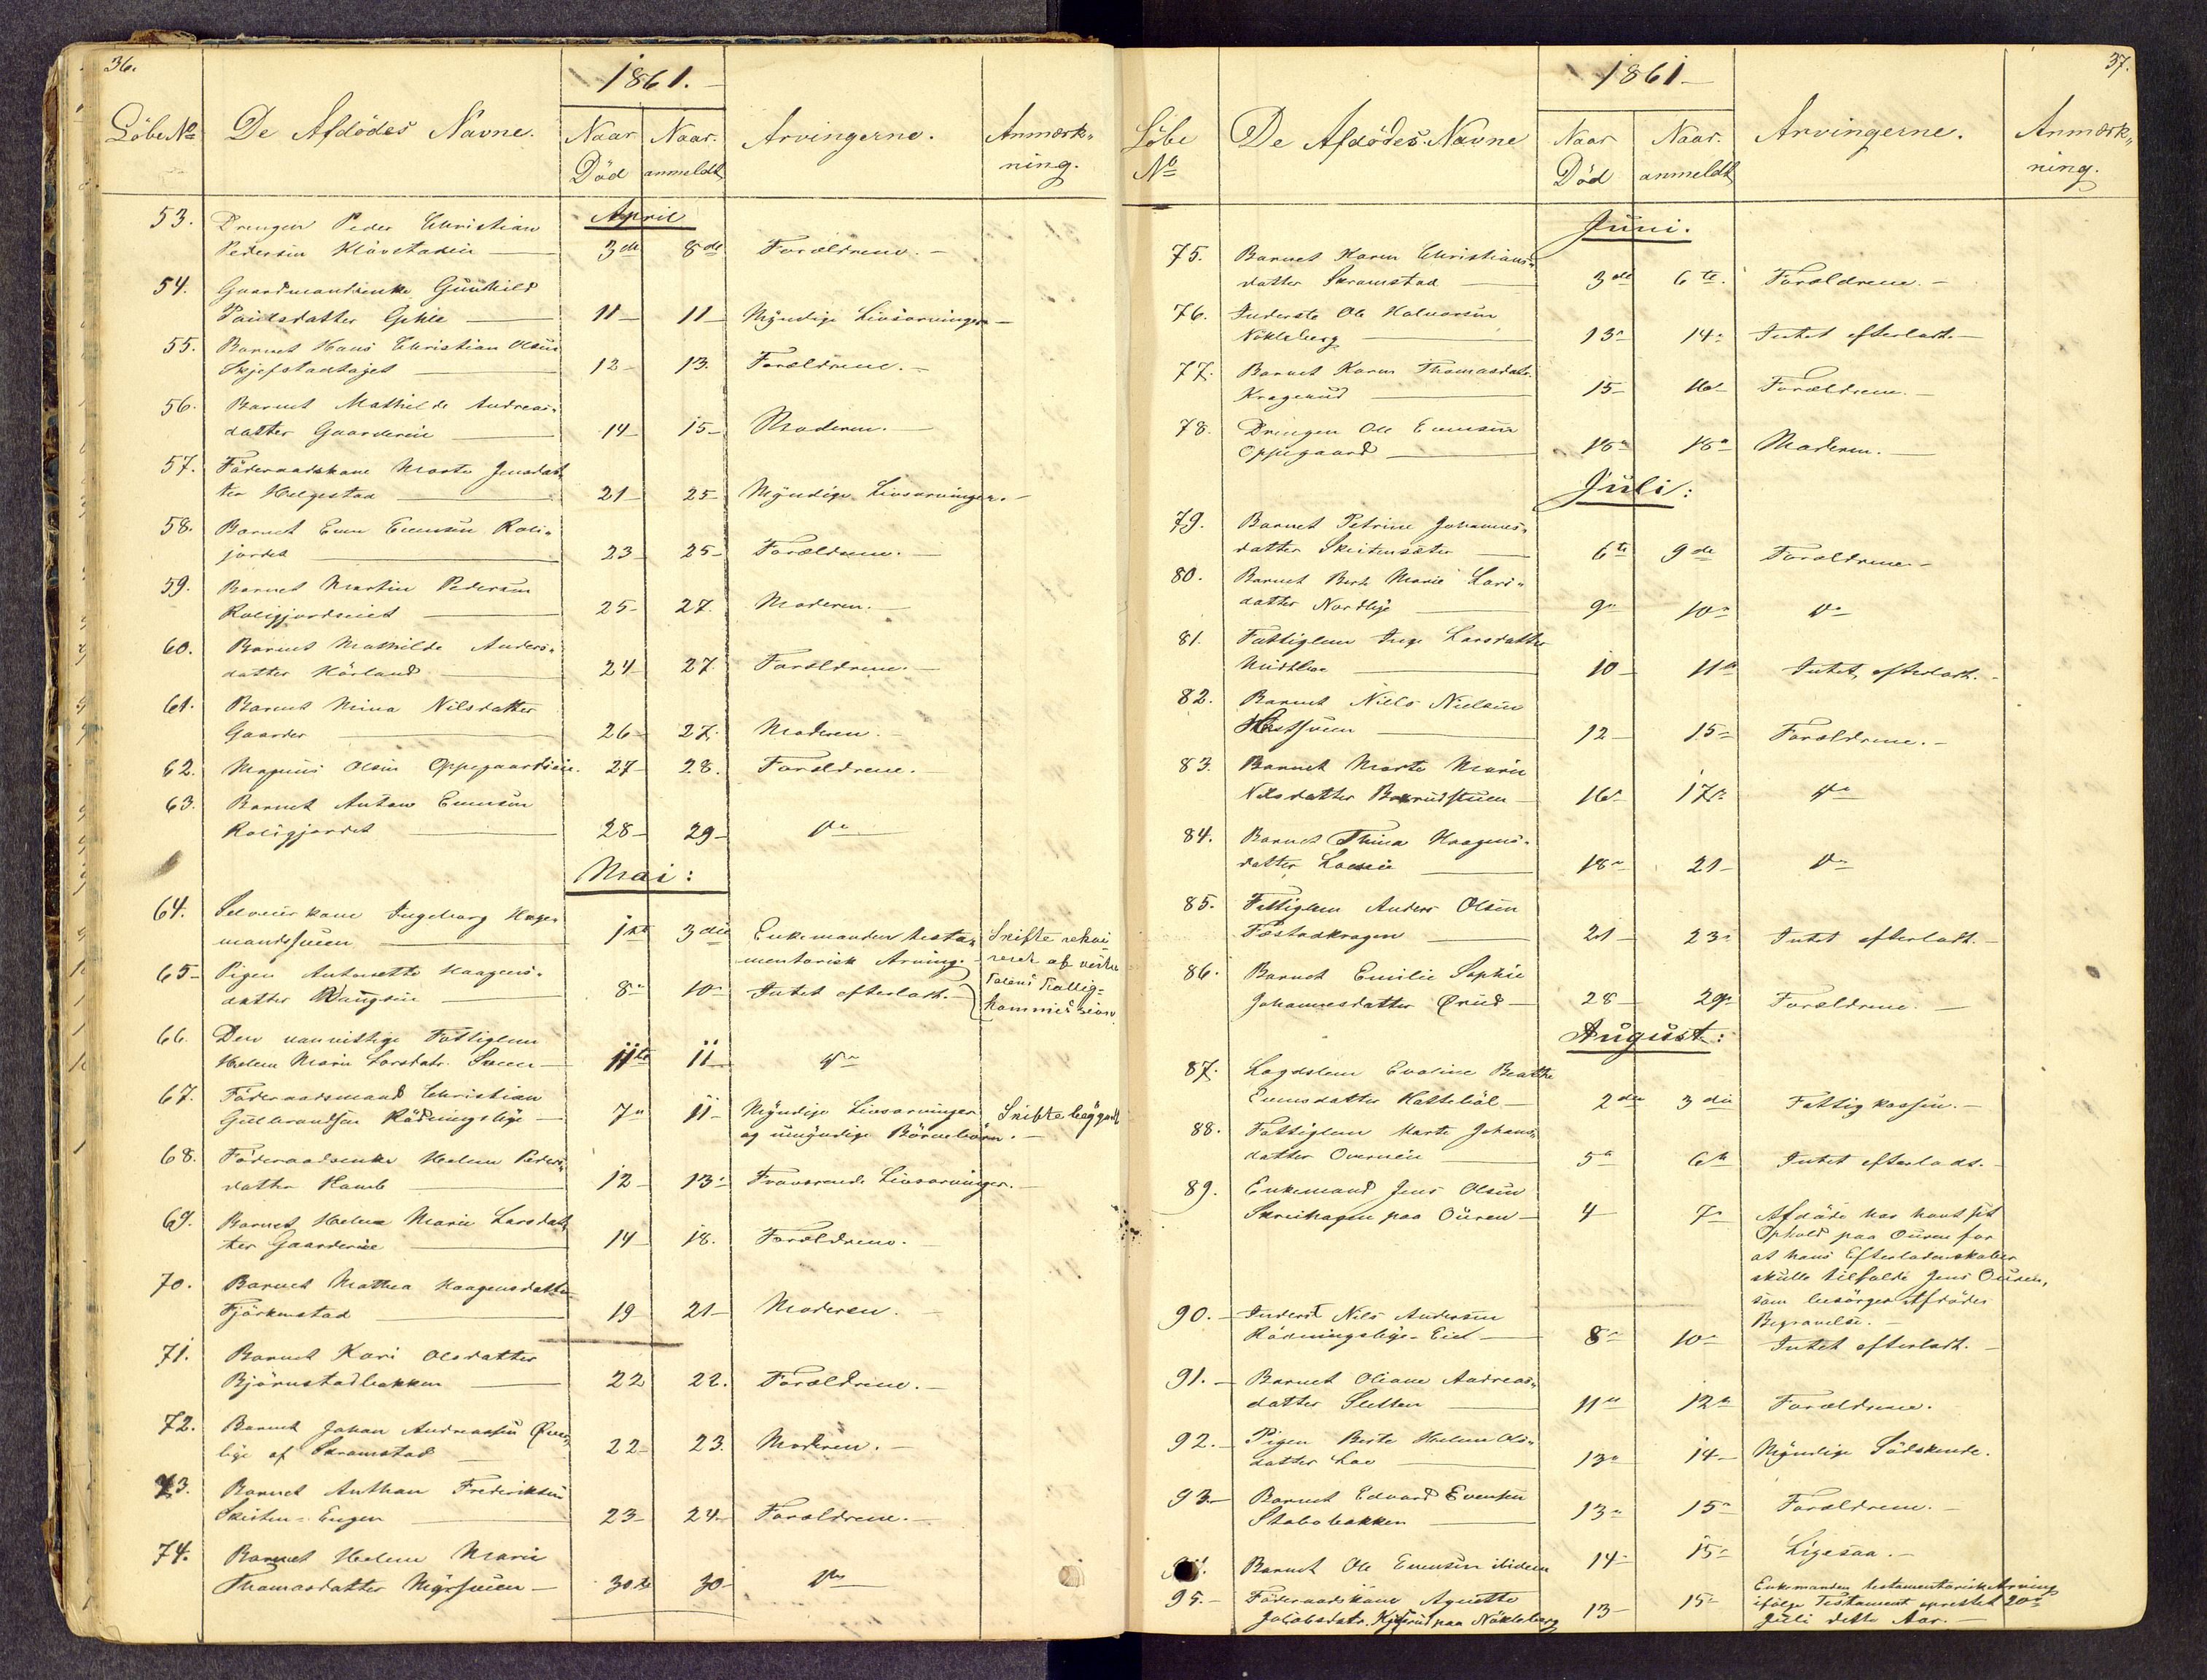 36.
1861.
Löbe No De Afdödes Navne. Naar Död Naar anmeldt Arvingerne. Anmærkning.
April
53. Drengen Peder Christian
Pedersen Klävstadeie 3de 8de Forældrene.
54. Gaardmandsenke Gunhild
Paulsdatter 11 11 Myndige Livsarvinger
55. Barnet Hans Christian Olsen
Skjefstadtaget 12 13. Forældrene.
56. Barnet Mathilde Andreas-
datter Gaardereie 14 15 Moderen.
57. Föderaadskone Marte Jensdat-
ter Helgestad 21 25 Myndige Livsarvinger.
58. Barnet Even Evensen Roli-
jordet 23 25 Forældrene.
59. Barnet Martin Pedersen
Roligjordseiet 25 27. Moderen.
60. Barnet Mathilde Anders-
datter Hörland 24 27 Forældrene.
61. Barnet Mina Nilsdatter
Gaarder 26 27. Moderen.
62. Magnus Olsen Oppegaardseie. 27 28. Forældrene.
63. Barnet Anton Evensen
Roligjordet 28 29 do
Mai:
64. Selveierkone Ingeborg Hage-
mandsstuen 1ste 3die Enkemanden testa-
mentarisk Arving. Skifte rekvi-
reret af
65 Pigen Antonette Haagens-
datter Vangseie 8 10 Intet efterladt. Fattig-
kommission
66. Den vanvittige Fattiglem
Helene Marie Larsdatr. 11te 11 do
67. Föderaadsmand Christian
Gulbrandsen Rödningsbye 7 11 Myndige Livsarvinger
og umyndige Börnebörn. Skifte begyndt
68. Föderaadsenke Helene Peders-
datter Hamb 12 13 Fraværende Livsarvinger.
69. Barnet Helene Marie Larsdat-
ter Gaardereie 14 18. Forældrene.
70. Barnet Mathea Haagensdatter
Fjörkenstad 19 21 Moderen.
71. Barnet Kari Olsdatter
Björnstadbakken 22 22. Forældrene.
72. Barnet Johan Andreassen Øver-
bye af Skramstad 22 23. Moderen.
73. Barnet Anthon Frederiksen
Skisten-Engen 23 24. Forældrene.
74. Barnet Helene Marie
Thomasdatter Myrstuen 30te 30 do
37.
1861
Löbe No De Afdödes Navne Naar Död Naar. anmeldt Arvingerne. Anmærkning.
Juni.
75. Barnet Karen Christians-
datter Skramstad 3de 6te. Forældrene.
76. Inderste Ole Halvorsen
Nökleberg 13 14 Intet efterladt.
77. Barnet Karen Thomasdatr.
Kragerud 15 16 Forældrene.
78. Drengen Ole Evensen
Oppegaard 18 18 Moderen.
Juli:
79. Barnet Petrine Johannes-
datter Skistensäter 6te 9de Forældrene
80. Barnet Berte Marie Lars-
datter Nordbye 9 10 do
81. Fattiglem Inge Larsdatter
10 11 Intet efterladt.
82. Barnet Niels Nielsen
12 15 Forældrene.
83. Barnet Marte Marie
Nilsdatter Bakrudstuen 16 17 do
84. Barnet Thina Haagens-
datter 18 21 do
85. Fattiglem Anders Olsen
Fæstadkragen 21 23 Intet efterladt.
86. Barnet Emilie Sophie
Johannesdatter Ørud 28 29 Forældrene.
August:
87. Lægdslem Evaline Beathe
Evensdatter Hatteböl 2den 3die Fattigkassen.
88. Fattiglem Marte Johans-
datter Overneie 5 6 Intet efterladt.
89. Enkemand Jens Olsen
Skreihagen paa Ouren 4 7 Afdöde har havt sit
Ophold paa Ouren for
at hans Efterladenskaber
skulle tilfalde Jens Ouren,
som besörger Afdödes
Begravelse.
90. Inderst Nils Andersen
Rödningsbye-Eiet 8 10 Intet efterladt.
91. Barnet Oliane Andreas-
datter Sletten 11 12 Forældrene.
92. Pigen Berte Helene Ols-
datter Loe 13 14 Myndige Södskende.
93. Barnet Edvard Evensen
Stabobakken 13 15 Forældrene.
Barnet Ole Evensen ibidem 14 15 Ligesaa.
95. Föderaadskone Agnette
Jakobsdatr. paa Nökleberg 13 15 Enkemanden testamentarisk Arving
ifölge Testament oprettet 20de
Juli dette Aar.